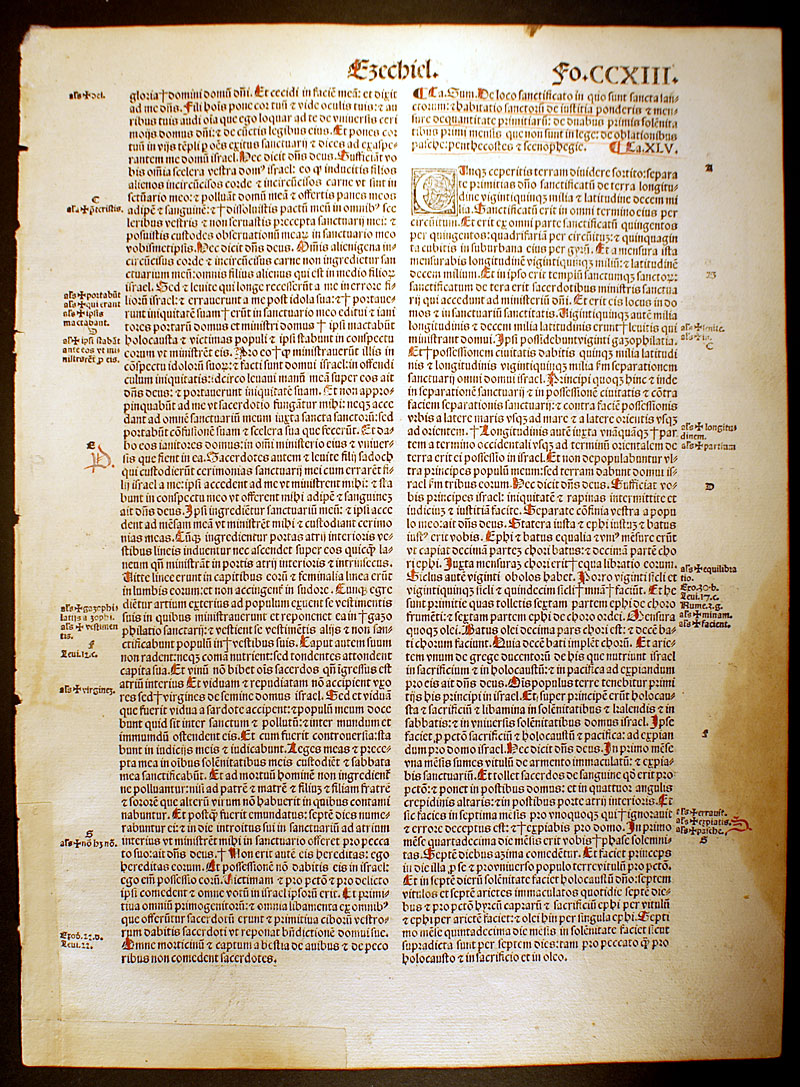 Ezechiel.
Fo.CCXIII.
als✠dei.
gloria†domini domū dñi. Et cecidi in faciē meā: et dixit
ad me dñs. Fili hoĩs pone cor tuū ⁊ vide oculis tuis: ⁊ au
ribus tuis audi oĩa que ego loquar ad te de vniuersis ceri
monijs domus dñi: ⁊ de cūctis legibus eius. Et pones cor
tuū in vijs tẽpli p oẽs exitus sanctuarij ⁊ dices ad exaspe-
rantem me domū israel. Hec dicit dñs deus. Sufficiāt vo
bis oĩa scelera vestra dom⁹ israel: eo ꝙ inducitis filios
alienos incircũcisos corde ⁊ incircũcisos carne vt sint in
sctuario meo: ⁊ polluant domū meā ⁊ offertis panes meos
adipē ⁊ sanguinē: ⁊†dissoluistis pactū meū in omnib⁹ sce
leribus vestris ⁊ non seruastis precepta sanctuarij mei: ⁊
posuistis custodes obseruationū meaꝝ in sanctuario meo
vobismetipsis. Hec dicit dñs deus. Om̃is alienigena in-
circũcisus corde ⁊ incircũcisus carne non ingredietur san
ctuarium meū: omnis filius alienus qui est in medio filioꝝ
israel. Sed ⁊ leuite qui longe recesserūt a me in errore fi-
lioꝝ israel: ⁊ errauerunt a me post idola sua: ⁊†portaue-
runt iniquitatē suam†erūt in sanctuario meo editui ⁊ iani
tores portarū domus et ministri domus†ipsi mactabūt
holocausta ⁊ victimas populi ⁊ ipsi stabunt in conspectu
eorum vt ministrēt eis. Pro eo†ꝙ ministrauerūt illis in
cōspectu idoloꝝ suoꝝ: ⁊ facti sunt domui israel: in offendi
culum iniquitatis: idcirco leuaui manū meā super eos ait
dñs deus: ⁊ portauerunt iniquitatē suam. Et non appro-
pinquabūt ad me vt sacerdotio fungātur mihi: neqꝫ acce
dant ad omnē sanctuariū meum iuxta sancta sanctoꝝ: sed
portabūt cōfusionē suam ⁊ scelera sua que fecerūt. Et da-
bo eos ianitores domus: in omni ministerio eius ⁊ vniuer-
sis que fient in ea. Sacerdotes autem ⁊ leuite filij sadoch
qui custodierūt cerimonias sanctuarij mei cum errarēt fi-
lij israel a me: ipsi accedent ad me vt ministrent mihi: ⁊ sta
bunt in conspectu meo vt offerent mihi adipē ⁊ sanguinē
ait dñs deus. Ipsi ingrediētur sanctuariū meū: ⁊ ipsi acce
dent ad mēsam meā vt ministrēt mihi ⁊ custodiant cerimo
nias meas. Cūqꝫ ingredientur portas atrij interioris ve-
stibus lineis induentur nec ascendet super eos quicꝗ la-
neum qñ ministrāt in portis atrij interioris ⁊ intrinsecus.
Uitte linee erunt in capitibus eorū ⁊ feminalia linea erūt
in lumbis eorum: et non accingent̃ in sudore. Cunqꝫ egre
diētur atrium exterius ad populum exuent se vestimentis
suis in quibus ministrauerunt et reponent ea in†gazo
philatio sanctarij: ⁊ vestient se vestimētis alijs ⁊ non san-
ctificabunt populū in†vestibus suis. Caput autem suum
non radent: neqꝫ comā nutrient: sed tondentes attondent
capita sua. Et vinū nō bibet oĩs sacerdos qñ igressus est
atriū interius Et viduam ⁊ repudiatam nō accipient vxo
res sed†virgines de semine domus israel. Sed et viduā
que fuerit vidua a sardote accipent: ⁊ populū meum doce
bunt quid sit inter sanctum ⁊ pollutū: ⁊ inter mundum et
immundū ostendent eis. Et cum fuerit controuersia: sta
bunt in iudicijs meis ⁊ iudicabunt. Leges meas ⁊ prece-
pta mea in oĩbus solēnitatibus meis custodiēt ⁊ sabbata
mea sanctificabūt. Et ad mortuū hominē non ingredient̃
ne polluantur: nisi ad patrē ⁊ matrē ⁊ filiuꝫ ⁊ filiam fratrē
⁊ sororē que alterū virum nō habuerit in quibus contami
nabuntur. Et postꝗ fuerit emundatus: septē dies nume-
rabuntur ei: ⁊ in die introitus sui in sanctuariū ad atrium
interius vt ministrēt mihi in sanctuario offeret pro pecca
to suo: ait dñs deus.†Non erit autē eis hereditas: ego
hereditas eorum. Et possessionē nō dabitis eis in israel:
ego em̃ possessio eorū. Uictimam ⁊ pro pctō ⁊ pro delicto
ipsi comedent ⁊ omne votū in israel ipsoꝝ erit. Et primi-
tiua omniū primogenitoꝝ: ⁊ omnia libamenta ex omnib⁹
que offerūtur sacerdotū erunt ⁊ primitiua ciboꝝ vestro-
rum dabitis sacerdoti vt reponat bñdictionē domui sue.
Omne morticinū ⁊ captum a bestia de auibus ⁊ de peco
ribus non comedent sacerdotes.
C
als✠p̃teristis.
als✠portabūt
als✠qui erunt
als✠ipsis
mactabant.
D
als✠ipsi stabāt
ante eos vt mi
nistrarēt p eis.
E
als✠gazophi
latijs a zophi.
als✠vestimen
tis.
F
Leui.12.c.
als✠virginez.
G
als✠nō hz nō.
Exod.22.d.
Leui.22.
¶ Ca. Sum. De loco sanctificato in quo sunt sancta san-
ctorum: ⁊ habitatio sanctoꝝ de iustitia ponderis ⁊ men-
sure de quantitate primitiarū: de duabus primis solēnita
tibus primi mensis que non sunt in lege: de oblationibus
pasche: penthecostes ⁊ scenophegie. ¶ Ca.XLV.
CUnqꝫ ceperitis terram diuidere sortito: separa
te primitias dño sanctificatū de terra longitu-
dine vigintiquinqꝫ milia ⁊ latitudine decem mi
lia. Sanctificatū erit in omni termino eius per
circuitum. Et erit ex omni parte sanctificatū quingentos
per quingentos: quadrifariā per circuitus: ⁊ quinquagin
ta cubitis in suburbana eius per gyꝝ. Et a mensura ista
mensurabis longitudinē vigintiquinqꝫ miliū: ⁊ latitudinē
decem milium. Et in ipso erit templū sanctumqꝫ sanctoꝝ:
sanctificatum de terra erit sacerdotibus ministris sanctua
rij qui accedunt ad ministeriū dñi. Et erit eis locus in do
mos ⁊ in sanctuariū sanctitatis. Uigintiquinqꝫ autē milia
longitudinis ⁊ decem milia latitudinis erunt†leuitis qui
ministrant domui. Ipsi possidebunt viginti gazophilatia.
Et†possessionem ciuitatis dabitis quinqꝫ milia latitudi
nis ⁊ longitudinis vigintiquinqꝫ milia fm separationem
sanctuarij omni domui israel. Principi quoqꝫ hinc ⁊ inde
in separationem sanctuarij ⁊ in possessionē ciuitatis ⁊ cōtra
faciem separationis sanctuarij: ⁊ contra faciē possessionis
vrbis a latere maris vsqꝫ ad mare ⁊ a latere orientis vsqꝫ
ad orientem.†Longitudinis autē iuxta vnāquāqꝫ†par
tem a termino occidentali vsqꝫ ad terminū orientalem de
terra erit ei possessio in israel. Et non depopulabuntur vl-
tra principes populū meum: sed terram dabunt domui is-
rael fm tribus eorum. Hec dicit dñs deus. Sufficiat vo-
bis principes israel: iniquitatē ⁊ rapinas intermittite et
iudiciuꝫ ⁊ iustitiā facite. Separate cōfinia vestra a popu
lo meo: ait dñs deus. Statera iusta ⁊ ephi iustuꝫ ⁊ batus
iust⁹ erit vobis. Ephi ⁊ batus equalia ⁊ vni⁹ mēsure erūt
vt capiat decimā partez chori batus: ⁊ decimā partē cho
ri ephi. Iuxta mensuraꝫ chori erit†equa libratio eorum.
Siclus autē viginti obolos habet. Porro viginti sicli et
vigintiquinqꝫ sicli ⁊ quindecim sicli†mnā†faciūt. Et he
sunt primitie quas tolletis sextam partem ephi de choro
frumēti: ⁊ sextam partem ephi de choro ordei. Mensura
quoqꝫ olei. Batus olei decima pars chori est: ⁊ decē ba-
ti chorum faciunt. Quia decē bati implēt chorū. Et arie-
tem vnum de grege ducentoꝝ de his que nutriunt israel
in sacrificium ⁊ in holocaustū: ⁊ in pacifica ad expiandum
pro eis ait dñs deus. Oĩspopulus terre tenebitur primi
tijs his principi in israel. Et super principē erūt holocau
sta ⁊ sacrificiū ⁊ libamina in solēnitatibus ⁊ kalendis ⁊ in
sabbatis: ⁊ in vniuersis solēnitatibus domus israel. Ipse
faciet pro pctō sacrificiū ⁊ holocaustū ⁊ pacifica: ad expian
dum pro domo israel. Hec dicit dñs deus. In primo mēse
vna mēsis sumes vitulū de armento immaculatū: ⁊ expia-
bis sanctuariū. Et tollet sacerdos de sanguine qd̃ erit pro
pctō: ⁊ ponet in postibus domus: et in quattuor angulis
crepidinis altaris: ⁊ in postibus porte atrij interioris. Et
sic facies in septima mēsis pro vnoquoqꝫ qui†ignorauit
⁊ errore deceptus est: ⁊†expiabis pro domo. In primo
mēse quartadecima die mēsis erit vobis†phase solemni
tas. Septē diebus azima comedētur. Et faciet princeps
in die illa pro se ⁊ pro vniuerso populo terre vitulū pro pctō.
Et in septē dierū solēnitate faciet holocaustū dño: septem
vitulos et septē arietes immaculatos quotidie septē die-
bus ⁊ pro pctō hyrcū capraꝝ ⁊ sacrificiū ephi per vitulū
⁊ ephi per arietē faciet: ⁊ olei hin per singula ephi. Septi
mo mēse quintadecima die mēsis in solēnitate faciet sicut
supradicta sunt per septem dies: tam pro peccato ꝗ̃ pro
holocausto ⁊ in sacrificio et in oleo.
A
B
als✠leuite.
C
als✠longitu
dinem.
als✠partium
D
als✠equilibra
tio.
Exo.30.b.
Leui.17.c.
Nume.3.g.
als✠minam.
als✠facient.
F
als✠errauit.
als✠expiatis.
als✠pasche.
G